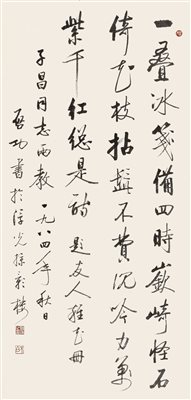 一叠冰笺备四时嵌崎怪石
倚花枝拈髭不费沉吟力万
紫千红总是诗 题友人杂花册
子昌同志雨教 一九八四年秋日
启功书于浮光掠影楼